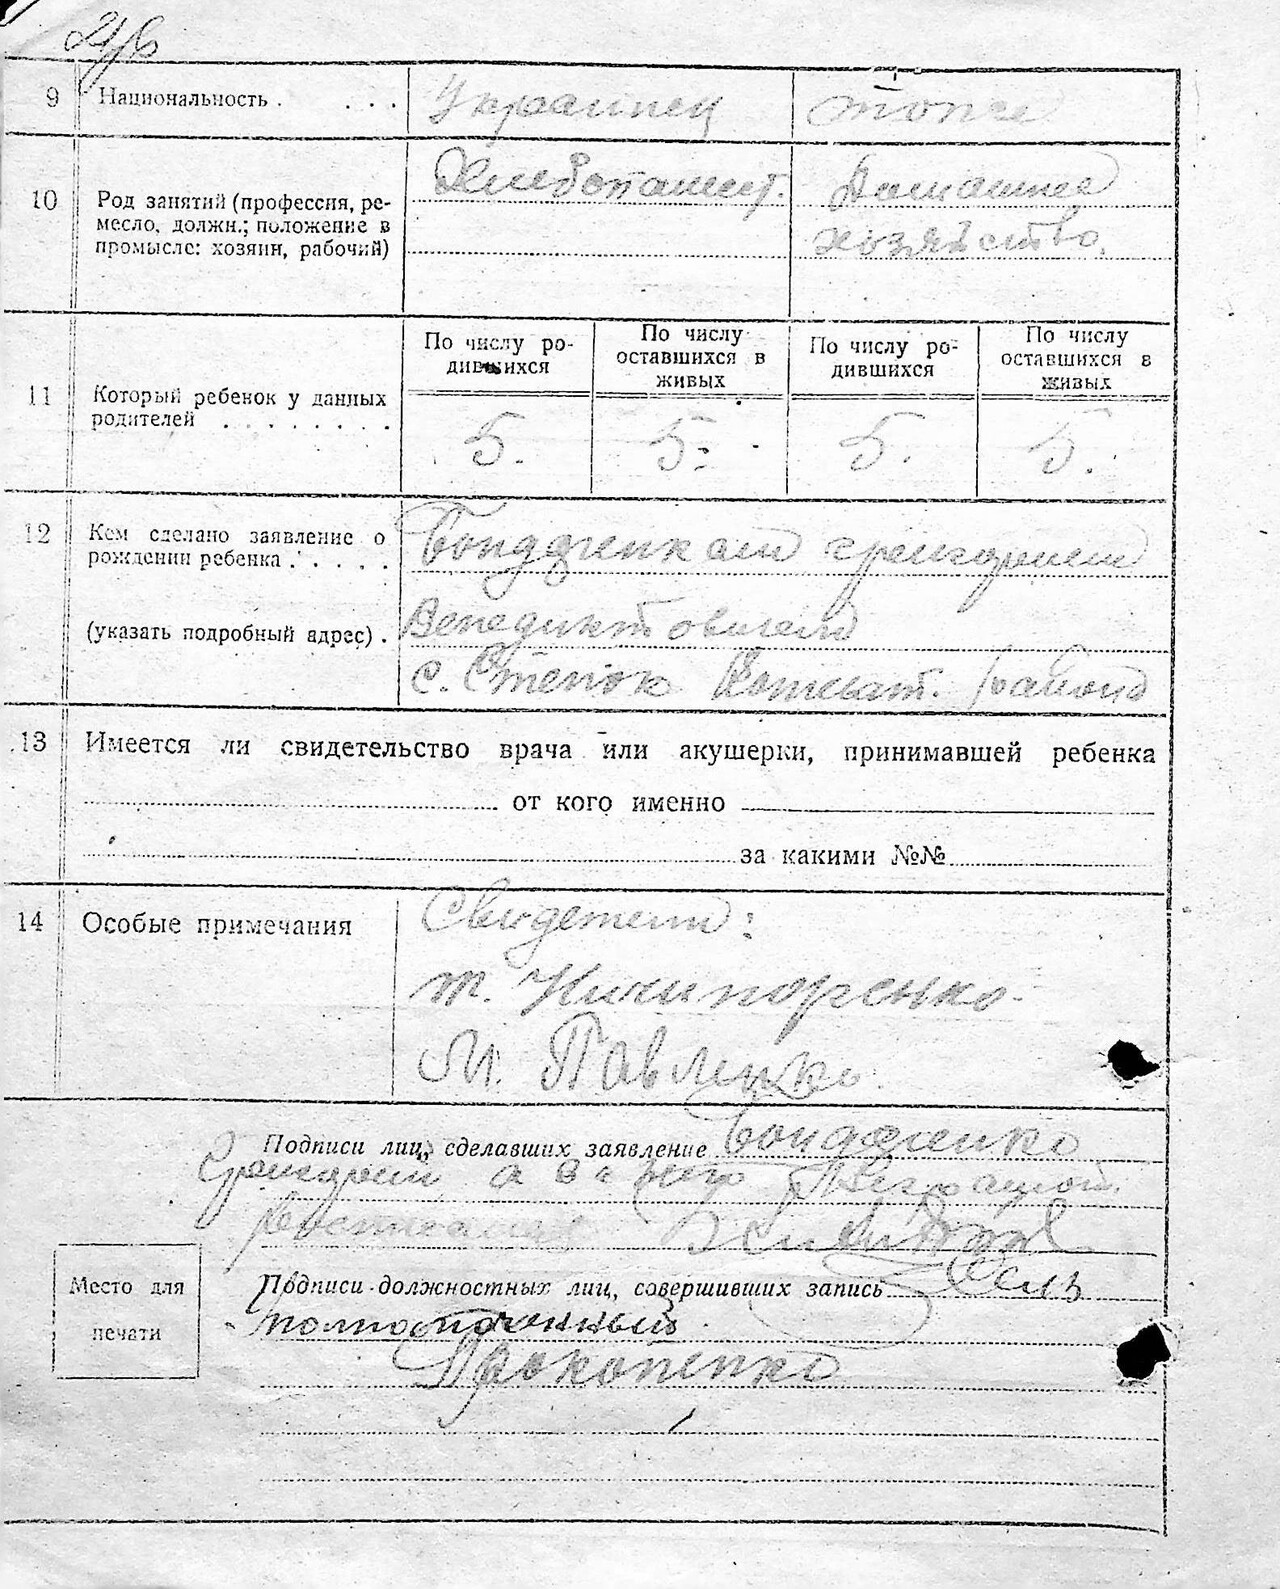 9 Национальность . . . . Украинец тоже
10 Род занятий (профессия, ре-
месло, должн.; положение в
промысле: хозяин, рабочий)
Хлебопашец. Домашнее
хозяйство.
11 Который ребенок у данных
родителей . . . . . . . .
По числу ро-
дившихся
По числу
оставшихся в
живых
По числу ро-
дившихся
По числу
оставшихся в
живых
5. 5. 5. 5.
12 Кем сделано заявление о
рождении ребенка . . . . .
(указать подробный адрес) .
Бондаренком Григорием
Венедиктовичем
с. Степок района
13 Имеется ли свидетельство врача или акушерки, принимавшей ребенка
от кого именно
за какими №№
14 Особые примечания
Свидетели:
т. Ничипоренко
М. Павленко
Подписи лиц, сделавших заявление Бондаренко
Григорий а за него
Место для
печати
Подписи должностных лиц, совершивших запись
Прокопенко